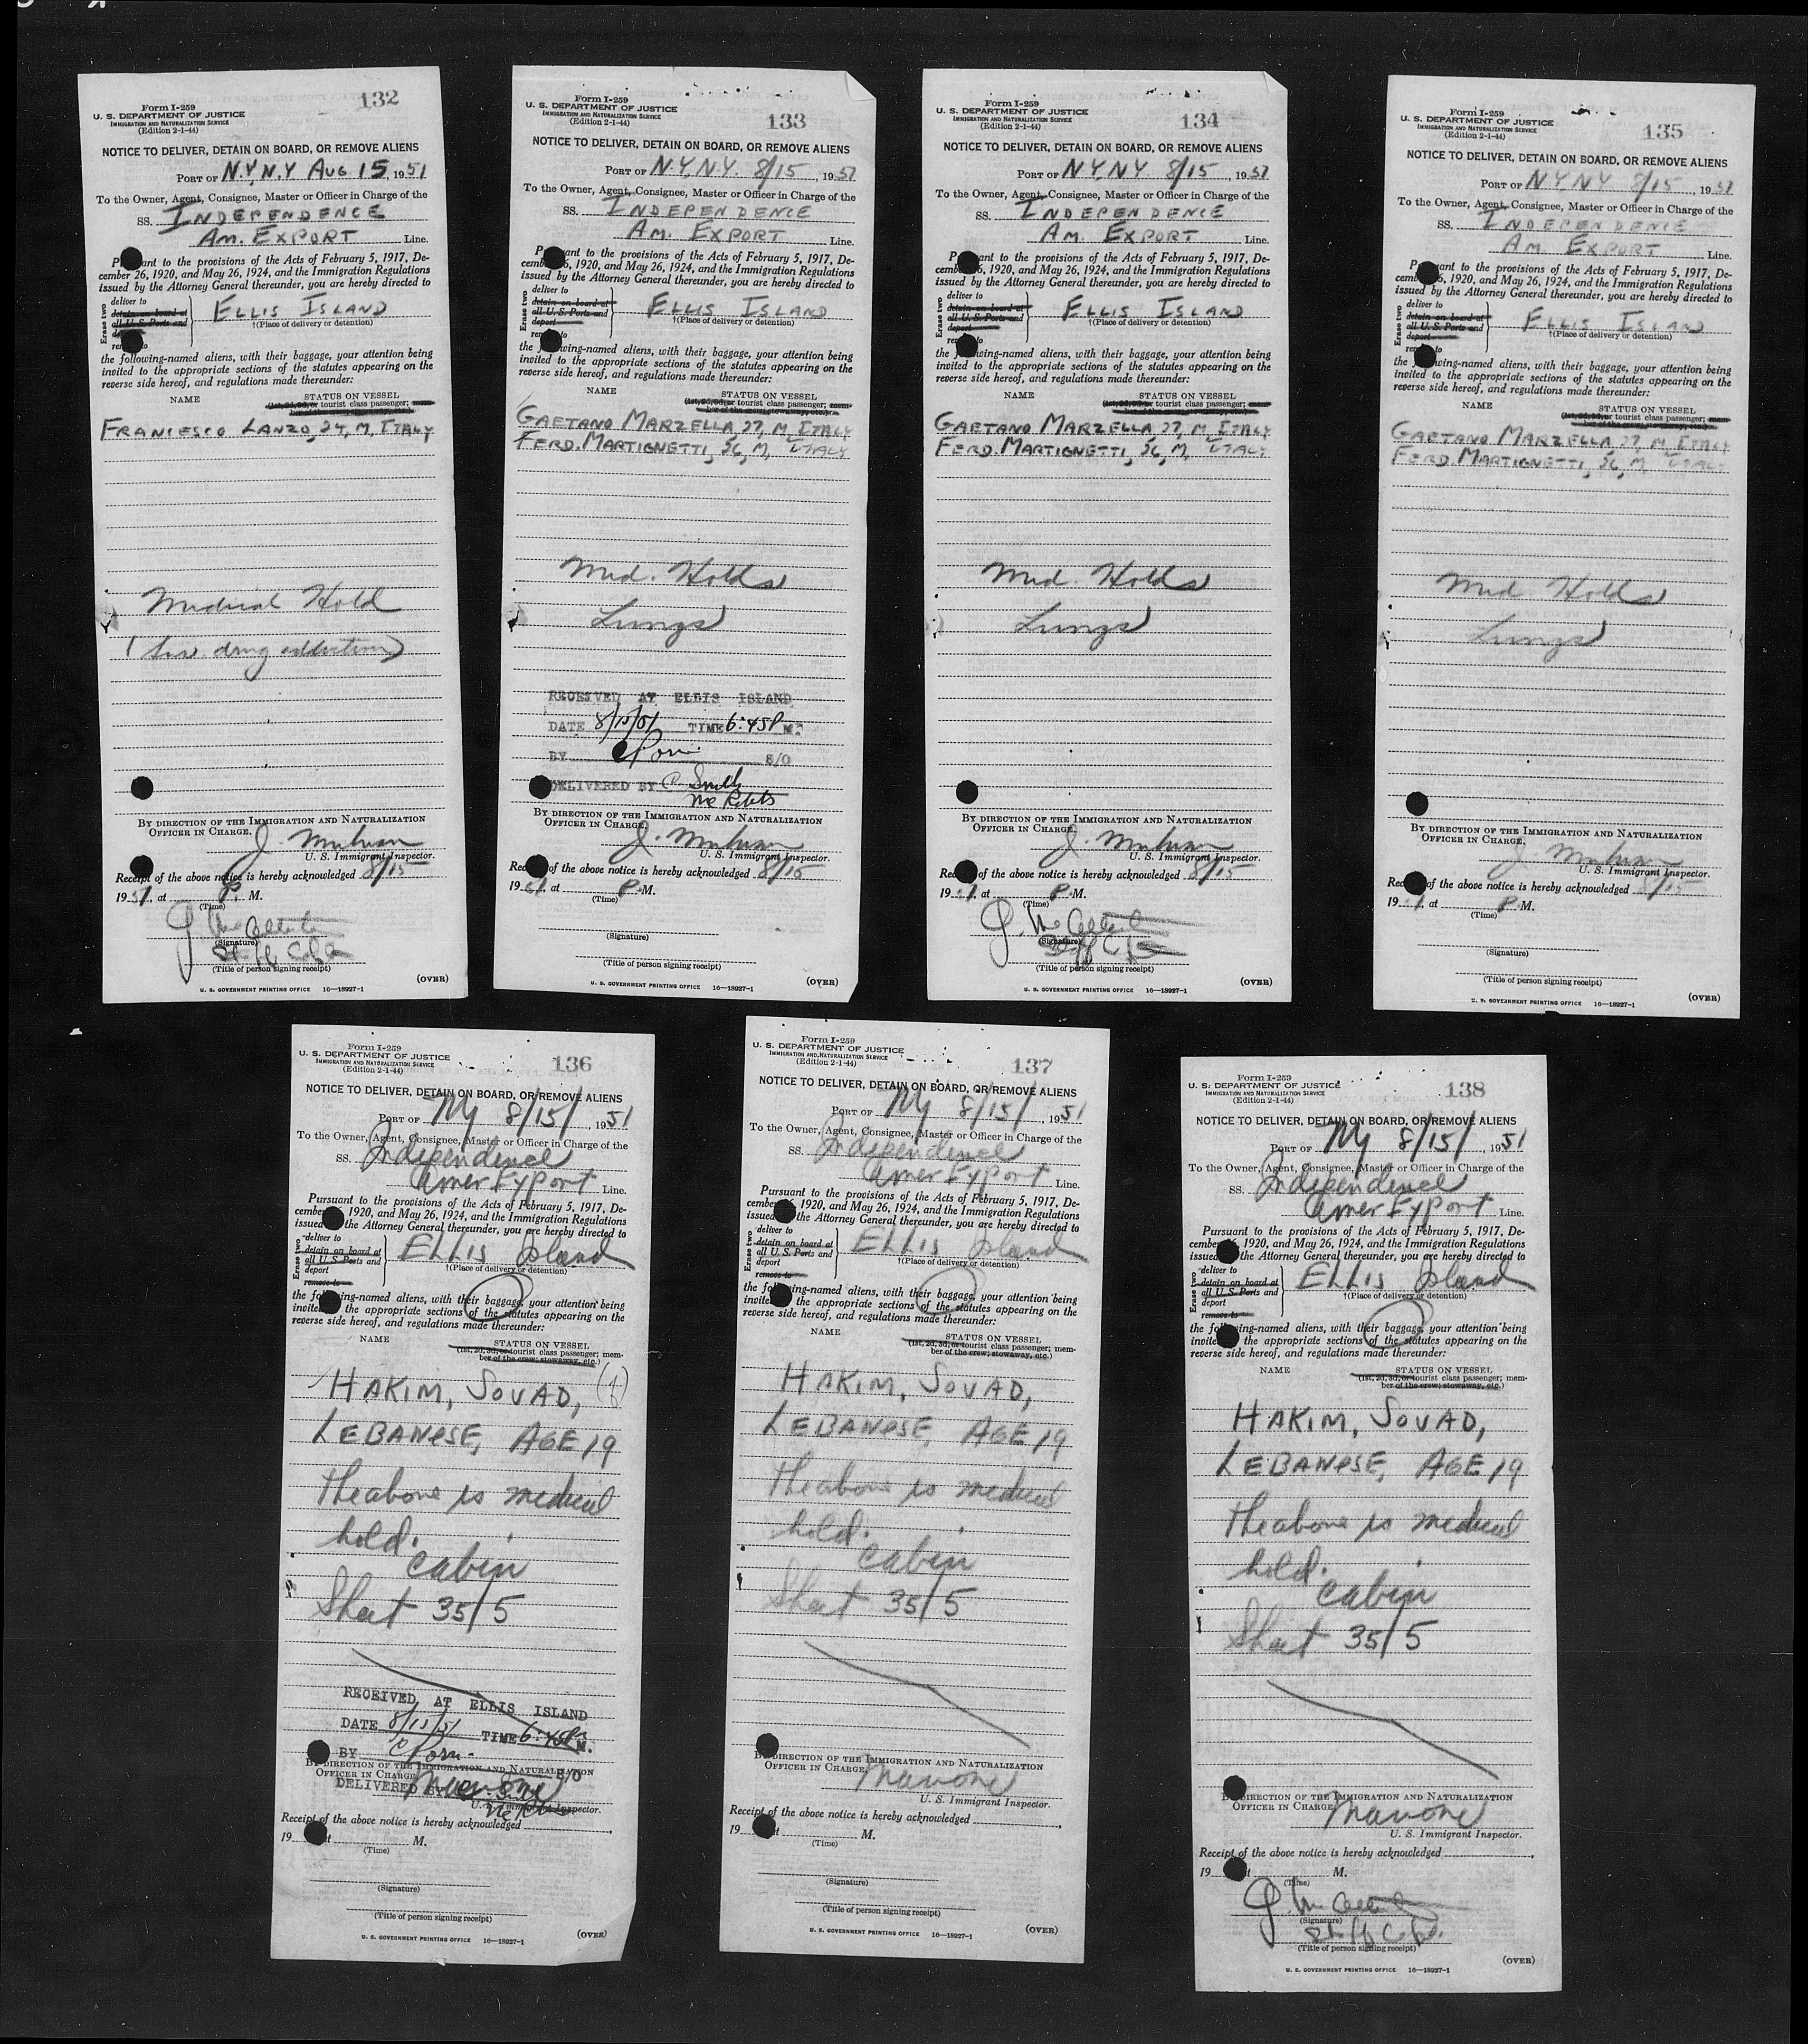 132
Form I-259
U. S. DEPARTMENT OF JUSTICE
IMMIGRATION AND NATURALIZATION SERVICE
(Edition 2-1-44)
NOTICE TO DELIVER, DETAIN ON BOARD, OR REMOVE ALIENS
PORT OF N.Y, N.Y AUG 15, 1951
To the Owner, Agent, Consignee, Master or Officer in Charge of the
SS. INDEPENDENCE
AM. EXPORT Line.
Pursuant to the provisions of the Acts of February 5, 1917, De-
cember 26, 1920, and May 26, 1924, and the Immigration Regulations
issued by the Attorney General thereunder, you are hereby directed to
Erase two
deliver to
detain on board at
all U. S. Ports and
deport
remove to
ELLIS ISLAND
†(Place of delivery or detention)
the following-named aliens, with their baggage, your attention being
invited to the appropriate sections of the statutes appearing on the
reverse side hereof, and regulations made thereunder:
NAME STATUS ON VESSEL
(1st, 2d, 3d, or tourist class passenger; mem-
ber of the crew; stowaway, etc.)
FRANCESCO LANZO, 24, M, ITALY
Medical Hold
drug addiction)
BY DIRECTION OF THE IMMIGRATION AND NATURALIZATION
OFFICER IN CHARGE.
U. S. Immigrant Inspector.
Receipt of the above notice is hereby acknowledged 8/15
1951, at P. M.
(Time)
(Signature)
(Title of person signing receipt)
(OVER)
U. S. GOVERNMENT PRINTING OFFICE 16—18927-1
133
Form I-259
U. S. DEPARTMENT OF JUSTICE
IMMIGRATION AND NATURALIZATION SERVICE
(Edition 2-1-44)
NOTICE TO DELIVER, DETAIN ON BOARD, OR REMOVE ALIENS
PORT OF N.Y, N.Y. 8/15, 1951
To the Owner, Agent, Consignee, Master or Officer in Charge of the
SS. INDEPENDENCE
AM. EXPORT Line.
Pursuant to the provisions of the Acts of February 5, 1917, De-
cember 26, 1920, and May 26, 1924, and the Immigration Regulations
issued by the Attorney General thereunder, you are hereby directed to
Erase two
deliver to
detain on board at
all U. S. Ports and
deport
remove to
ELLIS ISLAND
†(Place of delivery or detention)
the following-named aliens, with their baggage, your attention being
invited to the appropriate sections of the statutes appearing on the
reverse side hereof, and regulations made thereunder:
NAME STATUS ON VESSEL
(1st, 2d, 3d, or tourist class passenger; mem-
ber of the crew; stowaway, etc.)
GAETANO MARZELLA, 27, M, ITALY
FERD. MARTIGNETTI, 56, M, ITALY
Med. Holds
Lungs
RECEIVED AT ELLIS ISLAND
DATE 8/15/51 TIME 6:45P M.
BY S/O
DELIVERED BY C. Smith
BY DIRECTION OF THE IMMIGRATION AND NATURALIZATION
OFFICER IN CHARGE.
U. S. Immigrant Inspector.
Receipt of the above notice is hereby acknowledged 8/15
1951 at P. M.
(Time)
(Signature)
(Title of person signing receipt)
(OVER)
U. S. GOVERNMENT PRINTING OFFICE 16—18927-1
134
Form I-259
U. S. DEPARTMENT OF JUSTICE
IMMIGRATION AND NATURALIZATION SERVICE
(Edition 2-1-44)
NOTICE TO DELIVER, DETAIN ON BOARD, OR REMOVE ALIENS
PORT OF N.Y N.Y. 8/15, 1951
To the Owner, Agent, Consignee, Master or Officer in Charge of the
SS. INDEPENDENCE
AM. EXPORT Line.
Pursuant to the provisions of the Acts of February 5, 1917, De-
cember 26, 1920, and May 26, 1924, and the Immigration Regulations
issued by the Attorney General thereunder, you are hereby directed to
Erase two
deliver to
detain on board at
all U. S. Ports and
deport
remove to
ELLIS ISLAND
†(Place of delivery or detention)
the following-named aliens, with their baggage, your attention being
invited to the appropriate sections of the statutes appearing on the
reverse side hereof, and regulations made thereunder:
NAME STATUS ON VESSEL
(1st, 2d, 3d, or tourist class passenger; mem-
ber of the crew; stowaway, etc.)
GAETANO MARZELLA, 27, M, ITALY
FERD. MARTIGNETTI, 56, M, ITALY
Med. Holds
Lungs
BY DIRECTION OF THE IMMIGRATION AND NATURALIZATION
OFFICER IN CHARGE.
U. S. Immigrant Inspector.
Receipt of the above notice is hereby acknowledged 8/15
1951 at P. M.
(Time)
(Signature)
(Title of person signing receipt)
(OVER)
U. S. GOVERNMENT PRINTING OFFICE 16—18927-1
135
Form I-259
U. S. DEPARTMENT OF JUSTICE
IMMIGRATION AND NATURALIZATION SERVICE
(Edition 2-1-44)
NOTICE TO DELIVER, DETAIN ON BOARD, OR REMOVE ALIENS
PORT OF N Y N Y 8/15, 1951
To the Owner, Agent, Consignee, Master or Officer in Charge of the
SS. INDEPENDENCE
AM EXPORT Line.
Pursuant to the provisions of the Acts of February 5, 1917, De-
cember 26, 1920, and May 26, 1924, and the Immigration Regulations
issued by the Attorney General thereunder, you are hereby directed to
Erase two
deliver to
detain on board at
all U. S. Ports and
deport
remove to
ELLIS ISLAND
†(Place of delivery or detention)
the following-named aliens, with their baggage, your attention being
invited to the appropriate sections of the statutes appearing on the
reverse side hereof, and regulations made thereunder:
NAME STATUS ON VESSEL
(1st, 2d, 3d, or tourist class passenger; mem-
ber of the crew; stowaway, etc.)
GAETANO MARZELLA, 27, M, ITALY
FERD. MARTIGNETTI, 56, M, ITALY
Med. Holds
Lungs
BY DIRECTION OF THE IMMIGRATION AND NATURALIZATION
OFFICER IN CHARGE.
U. S. Immigrant Inspector.
Receipt of the above notice is hereby acknowledged 8/15
1951 at P. M.
(Time)
(Signature)
(Title of person signing receipt)
(OVER)
U. S. GOVERNMENT PRINTING OFFICE 16—18927-1
136
Form I-259
U. S. DEPARTMENT OF JUSTICE
IMMIGRATION AND NATURALIZATION SERVICE
(Edition 2-1-44)
NOTICE TO DELIVER, DETAIN ON BOARD, OR REMOVE ALIENS
PORT OF NY 8/15/, 1951
To the Owner, Agent, Consignee, Master or Officer in Charge of the
SS. Independence
Amer Export Line.
Pursuant to the provisions of the Acts of February 5, 1917, De-
cember 26, 1920, and May 26, 1924, and the Immigration Regulations
issued by the Attorney General thereunder, you are hereby directed to
Erase two
deliver to
detain on board at
all U. S. Ports and
deport
remove to
ELLIS Island
†(Place of delivery or detention)
the following-named aliens, with their baggage, your attention being
invited to the appropriate sections of the statutes appearing on the
reverse side hereof, and regulations made thereunder:
NAME STATUS ON VESSEL
(1st, 2d, 3d, or tourist class passenger; mem-
ber of the crew; stowaway, etc.)
HAKIM, SOUAD, (f)
LEBANESE, AGE 19
The above is medical
hold.
cabin
Sheet 35/5
RECEIVED AT ELLIS ISLAND
DATE 8/15/51 TIME 6:45P M.
BY S/O
BY DIRECTION OF THE IMMIGRATION AND NATURALIZATION
OFFICER IN CHARGE.
DELIVERED BY
U. S. Immigrant Inspector.
Receipt of the above notice is hereby acknowledged
19 , at M.
(Time)
(Signature)
(Title of person signing receipt)
(OVER)
U. S. GOVERNMENT PRINTING OFFICE 16—18927-1
137
Form I-259
U. S. DEPARTMENT OF JUSTICE
IMMIGRATION AND NATURALIZATION SERVICE
(Edition 2-1-44)
NOTICE TO DELIVER, DETAIN ON BOARD, OR REMOVE ALIENS
PORT OF NY 8/15/, 1951
To the Owner, Agent, Consignee, Master or Officer in Charge of the
SS. Independence
Amer Export Line.
Pursuant to the provisions of the Acts of February 5, 1917, De-
cember 26, 1920, and May 26, 1924, and the Immigration Regulations
issued by the Attorney General thereunder, you are hereby directed to
Erase two
deliver to
detain on board at
all U. S. Ports and
deport
remove to
ELLIS Island
†(Place of delivery or detention)
the following-named aliens, with their baggage, your attention being
invited to the appropriate sections of the statutes appearing on the
reverse side hereof, and regulations made thereunder:
NAME STATUS ON VESSEL
(1st, 2d, 3d, or tourist class passenger; mem-
ber of the crew; stowaway, etc.)
HAKIM, SOUAD,
LEBANESE, AGE 19
The above is medical
hold.
cabin
Sheet 35/5
BY DIRECTION OF THE IMMIGRATION AND NATURALIZATION
OFFICER IN CHARGE. Manone
U. S. Immigrant Inspector.
Receipt of the above notice is hereby acknowledged
19 , at M.
(Time)
(Signature)
(Title of person signing receipt)
(OVER)
U. S. GOVERNMENT PRINTING OFFICE 16—18927-1
138
Form I-259
U. S. DEPARTMENT OF JUSTICE
IMMIGRATION AND NATURALIZATION SERVICE
(Edition 2-1-44)
NOTICE TO DELIVER, DETAIN ON BOARD, OR REMOVE ALIENS
PORT OF NY 8/15/, 1951
To the Owner, Agent, Consignee, Master or Officer in Charge of the
SS. Independence
Amer Export Line.
Pursuant to the provisions of the Acts of February 5, 1917, De-
cember 26, 1920, and May 26, 1924, and the Immigration Regulations
issued by the Attorney General thereunder, you are hereby directed to
Erase two
deliver to
detain on board at
all U. S. Ports and
deport
remove to
ELLIS Island
†(Place of delivery or detention)
the following-named aliens, with their baggage, your attention being
invited to the appropriate sections of the statutes appearing on the
reverse side hereof, and regulations made thereunder:
NAME STATUS ON VESSEL
(1st, 2d, 3d, or tourist class passenger; mem-
ber of the crew; stowaway, etc.)
HAKIM, SOUAD,
LEBANESE, AGE 19
The above is medical
hold.
cabin
Sheet 35/5
BY DIRECTION OF THE IMMIGRATION AND NATURALIZATION
OFFICER IN CHARGE. Manone
U. S. Immigrant Inspector.
Receipt of the above notice is hereby acknowledged
19 , at M.
(Time)
(Signature)
(Title of person signing receipt)
(OVER)
U. S. GOVERNMENT PRINTING OFFICE 16—18927-1